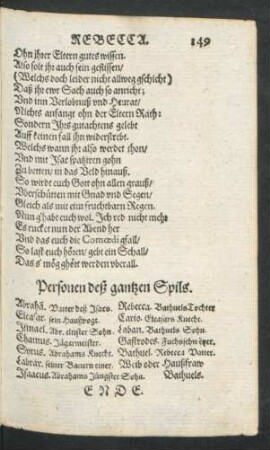 REBECCA. 149
Ohn jhrer Eltern gutes wissen.
Also solt jhr auch sein geflissen/
(Welchs doch leider nicht allweg gschicht)
Daß jhr ewr Sach auch so anricht;
Vnd inn Verlobnuß vnd Heurat/
Nichts anfangt ohn der Eltern Rath:
Sondern Ihrs gutachtens gelebt
Auff keinen fall jhn widerstrebt.
Welchs wann jhr also werdet thon/
Vnd mit Isac spatziren gohn
Zu betten/ in das Veld hinauß.
So werdt euch Gott ohn allen grauß/
Vberschütten mit Gnad vnd Segen/
Gleich als mit ein fruchtbarn Regen.
Nun g'habt euch wol. Ich red nicht mehr
Es rucket nun der Abend her
Vnd das euch die Comœdi gfall/
So last euch hören/ gebt ein Schall/
Das s' mög ghört werden vberall.
Personen deß gantzen Spils.
Abrahā. Vatter deß Isacs.
Eleazar. sein Haußvogt.
Ismael. Abr. eltster Sohn.
Thamus. Jägermeister.
Syrus. Abrahams Knecht.
Labrax. seiner Bauren einer.
Isaacus. Abrahams Jüngster Sohn.
Rebecca. Bathuels Tochter
Cario. Eleazars Knecht.
Laban. Bathuels Sohn.
Gastrodes. Fuchsschwätzer.
Bathuel. Rebecca Vatter.
Weib oder Haußfraw
Bathuels.
ENDE.